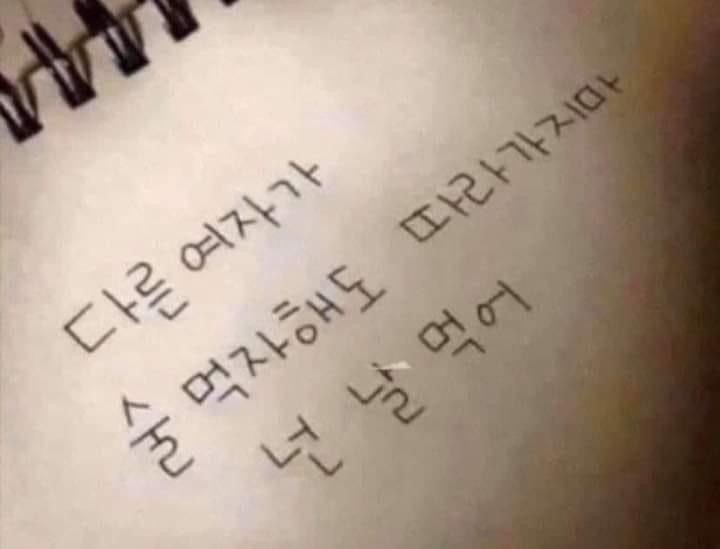 다른 여자가
술 먹자해도 따라가지마
넌 날 먹어